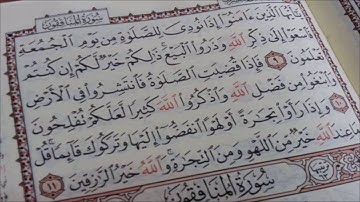 سورة المنافقون
يَٰٓأَيُّهَا ٱلَّذِينَ ءَامَنُوٓا۟ إِذَا نُودِىَ لِلصَّلَوٰةِ مِن يَوْمِ ٱلْجُمُعَةِ
فَٱسْعَوْا۟ إِلَىٰ ذِكْرِ ٱللَّهِ وَذَرُوا۟ ٱلْبَيْعَ ۚ ذَٰلِكُمْ خَيْرٌ لَّكُمْ إِن كُنتُمْ
تَعْلَمُونَ ٩ فَإِذَا قُضِيَتِ ٱلصَّلَوٰةُ فَٱنتَشِرُوا۟ فِى ٱلْأَرْضِ
وَٱبْتَغُوا۟ مِن فَضْلِ ٱللَّهِ وَٱذْكُرُوا۟ ٱللَّهَ كَثِيرًا لَّعَلَّكُمْ تُفْلِحُونَ ١٠
وَإِذَا رَأَوْا۟ تِجَٰرَةً أَوْ لَهْوًا ٱنفَضُّوٓا۟ إِلَيْهَا وَتَرَكُوكَ قَآئِمًا ۚ قُلْ مَا
عِندَ ٱللَّهِ خَيْرٌ مِّنَ ٱللَّهْوِ وَمِنَ ٱلتِّجَٰرَةِ ۚ وَٱللَّهُ خَيْرُ ٱلرَّٰزِقِينَ ١١
سورة المنافقون